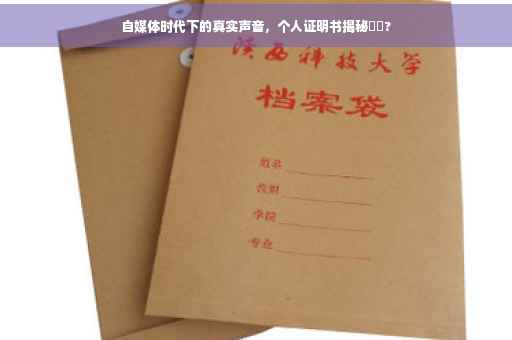 自媒体时代下的真实声音，个人证明书揭秘▯▯？
陕西科技大学
档案袋
姓名
学院
专业